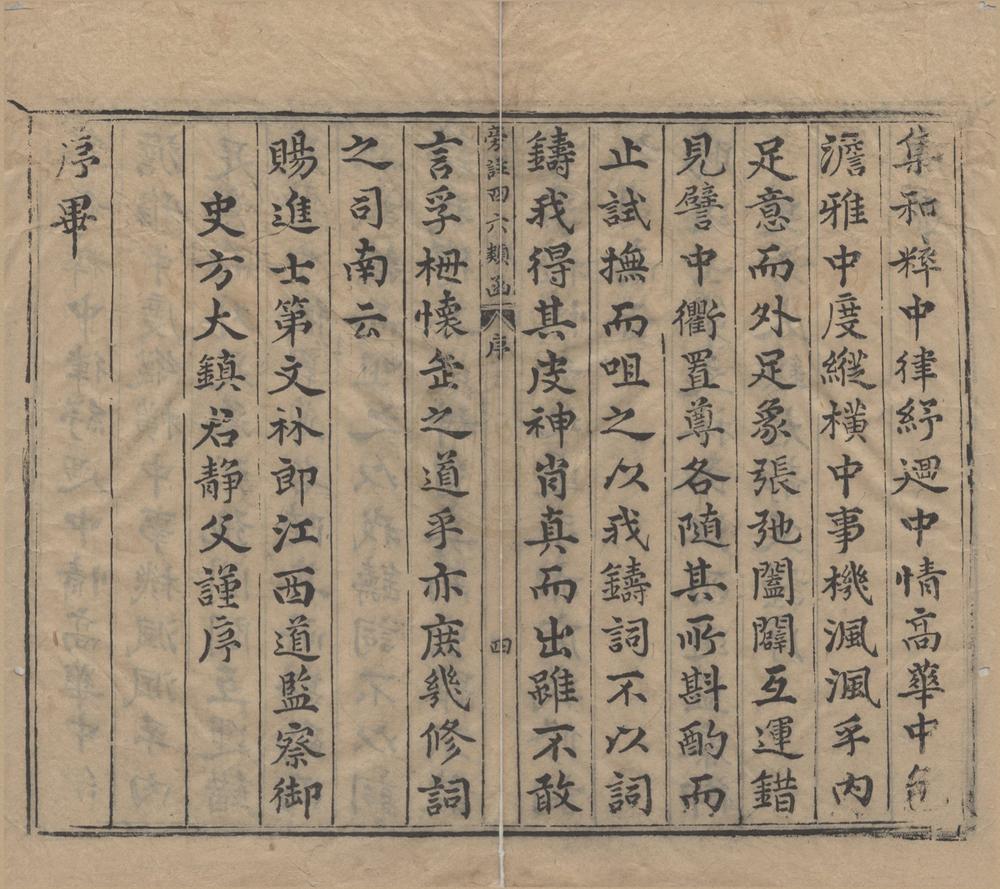 集和粹中律紓迥中情高華中
澹雅中度縱橫中事機渢渢乎内
足意而外足象張弛闔闢互運錯
見譬中衢置尊各随其所斟酌而
止試撫而咀之以我鑄詞不以詞
鑄我得其皮神肖真而出雖不敢
旁註四六類函 序 四
言孚栅懷岳之道乎亦庶幾修詞
之司南云
賜進士第文林郎江西道監察御
史方大鎮君静父謹序
序畢